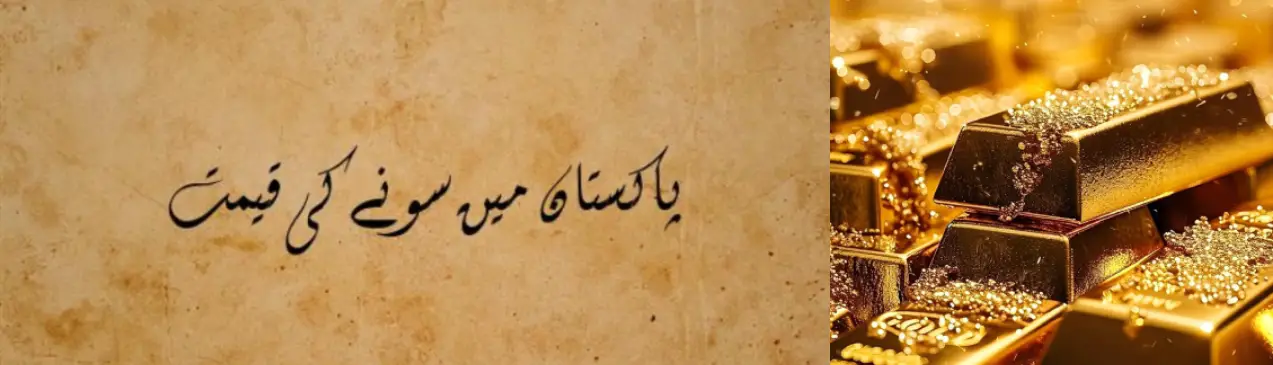 پاکستان میں سونے کی قیمت